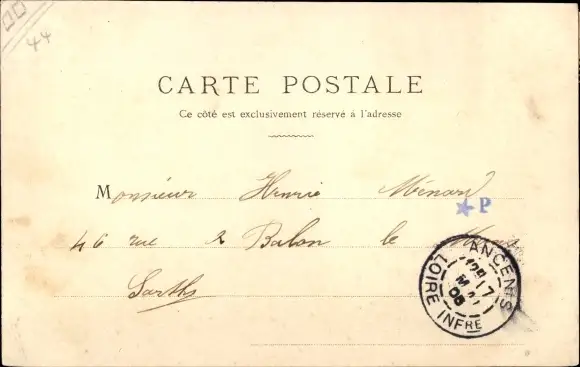 44
CARTE POSTALE
Ce côté est exclusivement réservé à l'adresse
Monsieur Henri Ménard
P
46 rue de Balon le Mans
Sarthe
ANCENIS
17
05
LOIRE INFRE